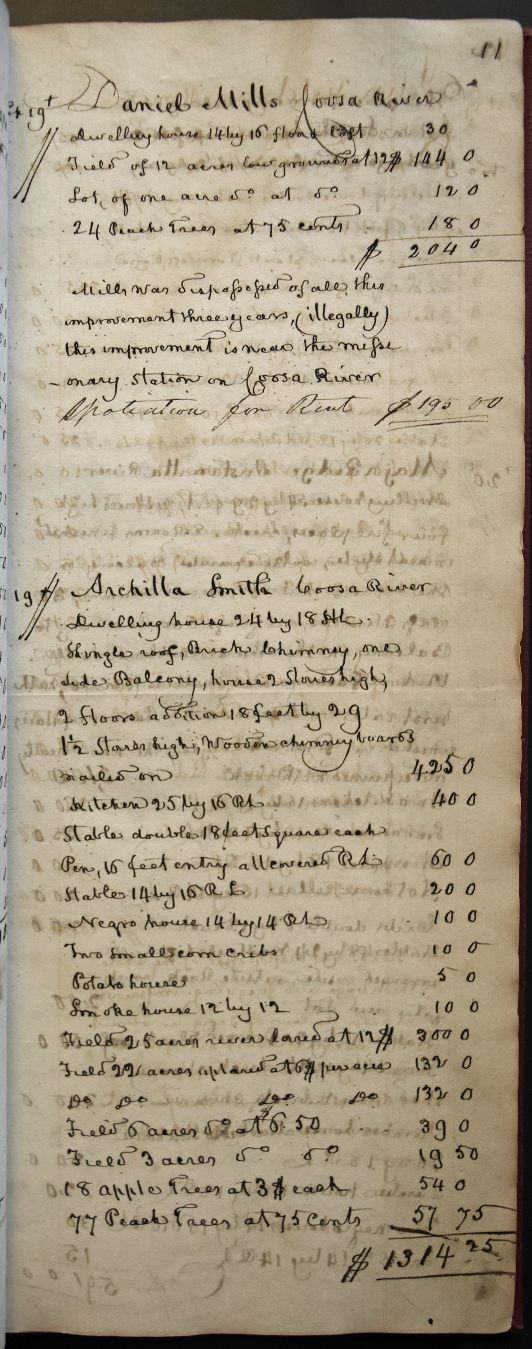 11
19t Daniel Mills Coosa River
Dwelling house 14 by 16 30
Field of 12 acres low grounds at 12$ 144 0
Lot, of one acre do at do 12 0
24 Peach Trees at 75 cents 18 0
$ 204 0
Mills was dispossessed of all this
improvement three years, (illegally)
this improvement is near the missi
-onary station on Coosa River
Spoliation for Rent $195 00
19 Archilla Smith Coosa River
Dwelling house 24 by 18 
Shingle roof, Brick Chimney, one
side Balcony, house 2 Stories high,
2 floors addition 18 feet by 29
1½ Stories high, Wooden chimney boards
nailed on 425 0
Kitchen 25 by 16 RL 40 0
Stable double 18 feet square each
Pen, 16 feet entry all covered RL 60 0
Stable 14 by 16 R L 20 0
Negro house 14 by 14 RL 10 0
Two small corn cribs 10 0
Potato house 5 0
Smoke house 12 by 12 10 0
Field 25 acres river land at 12$ 300 0
Field 22 acres upland at 6$ per acre 132 0
Do Do Do Do 132 0
Field 6 acres do at 6.50 39 0
Field 3 acres do do 19 50
18 apple Trees at 3$ each 54 0
77 Peach Trees at 75 Cents 57 75
$ 1314 25